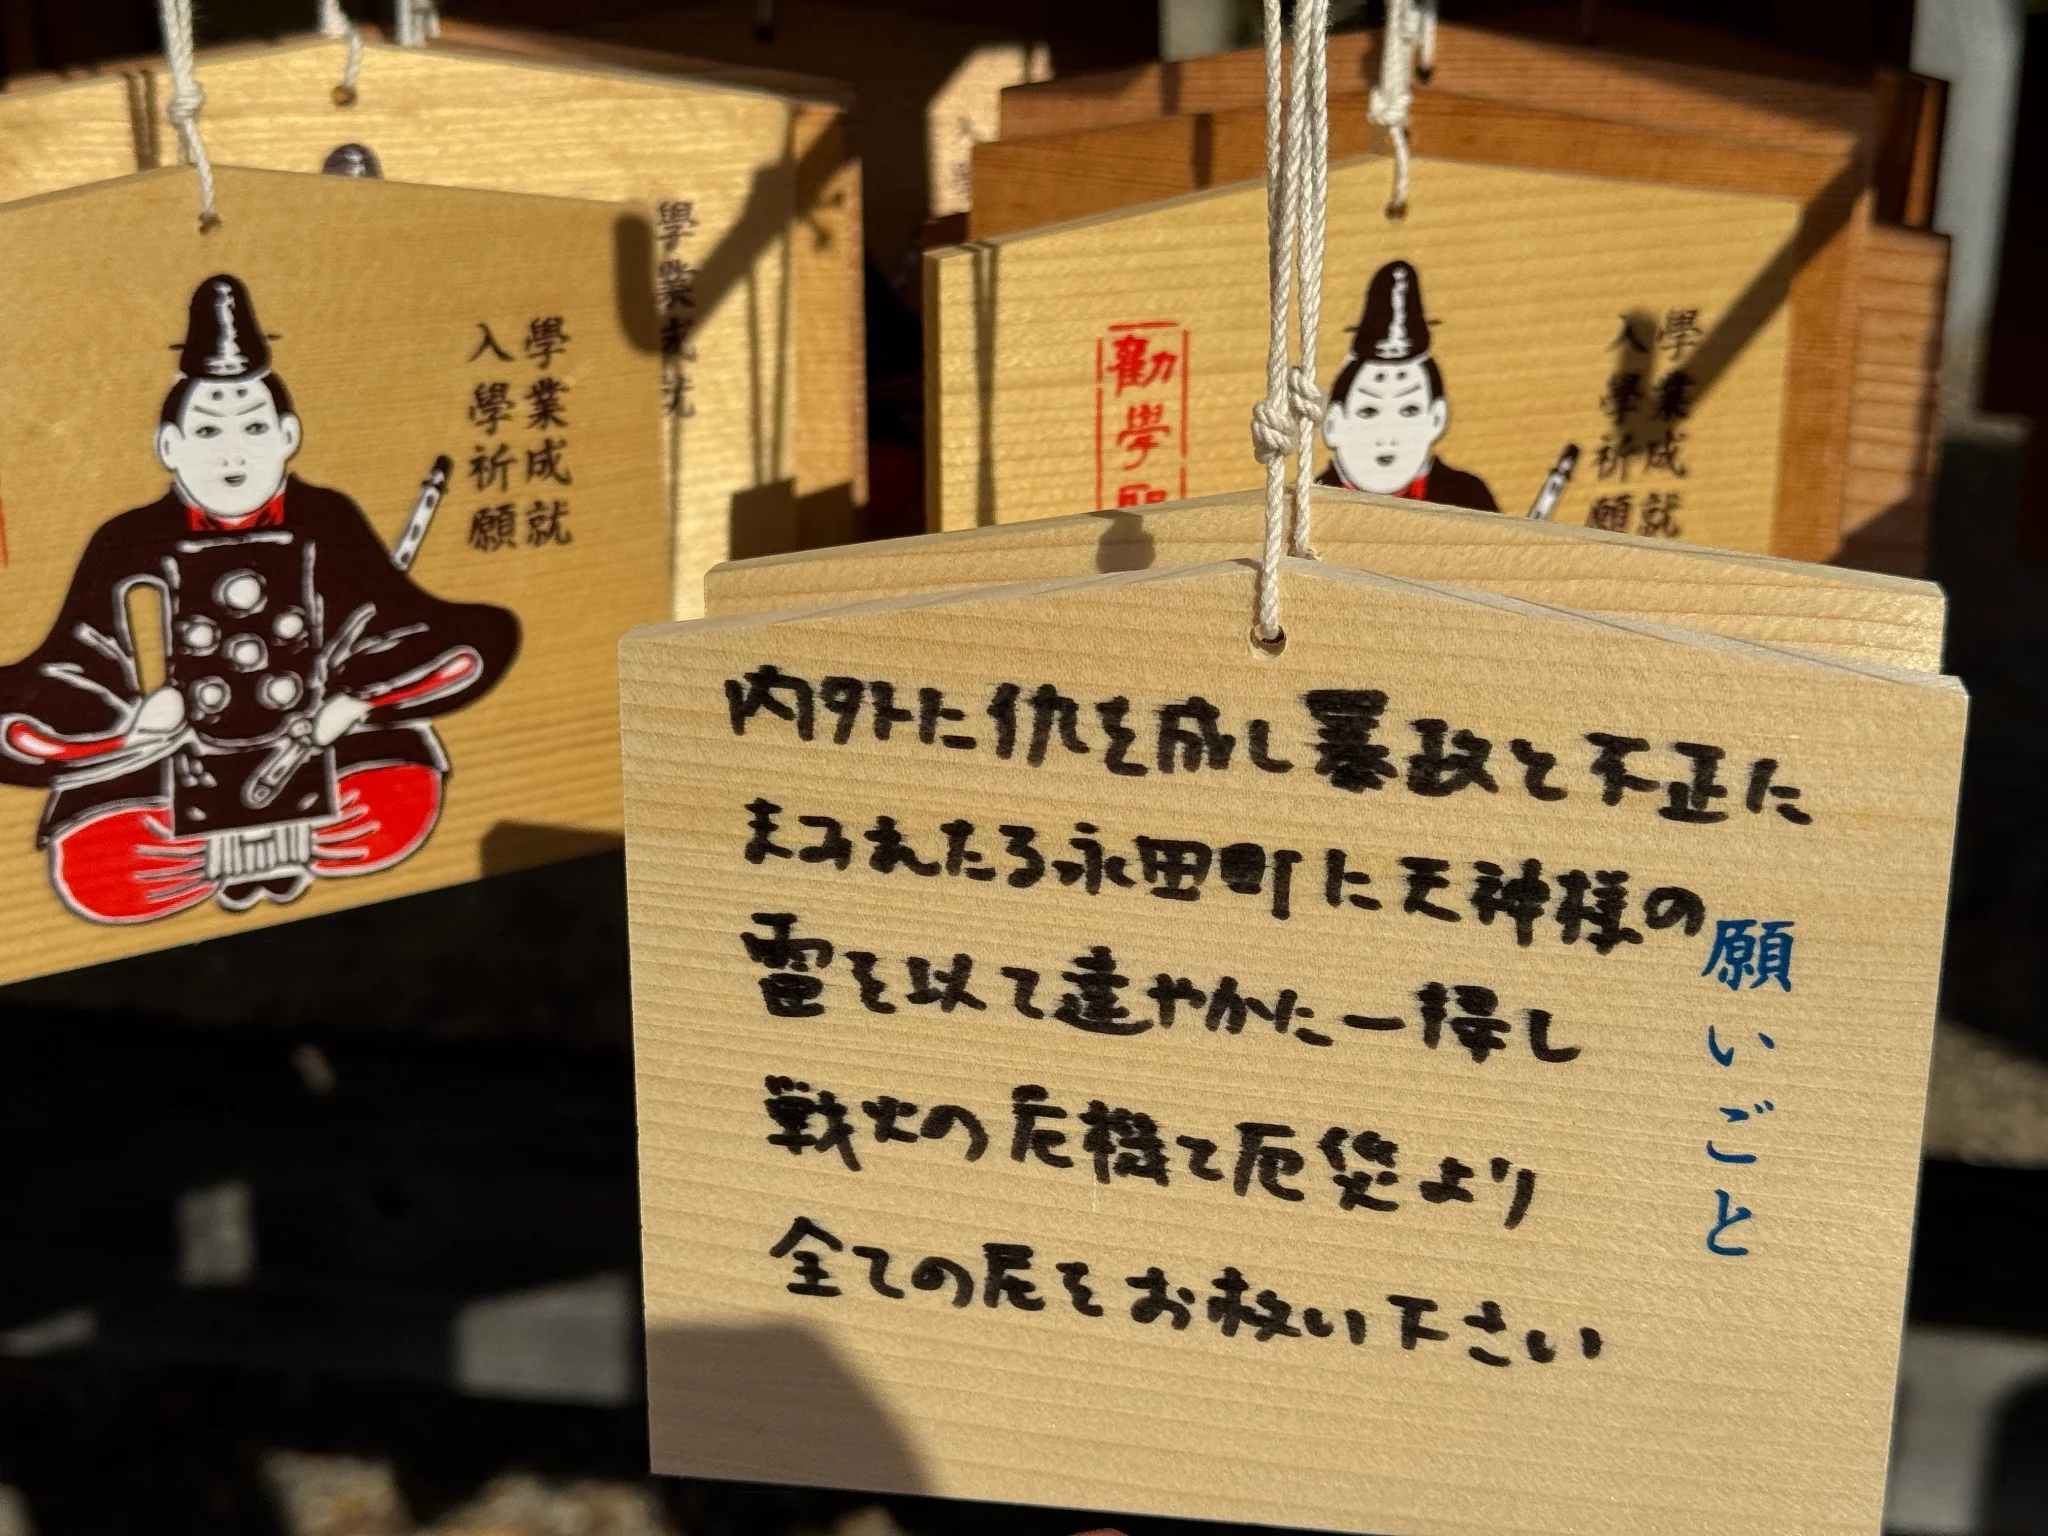 學業成就
入學祈願
學業成就
勧學
學業成就
入學祈願
内外に仇を成し暴政と不正に
まみれたる永田町に天神様の
雷を以て速やかに一掃し
戦火の危機と厄災より
全ての民をお救い下さい
願いごと